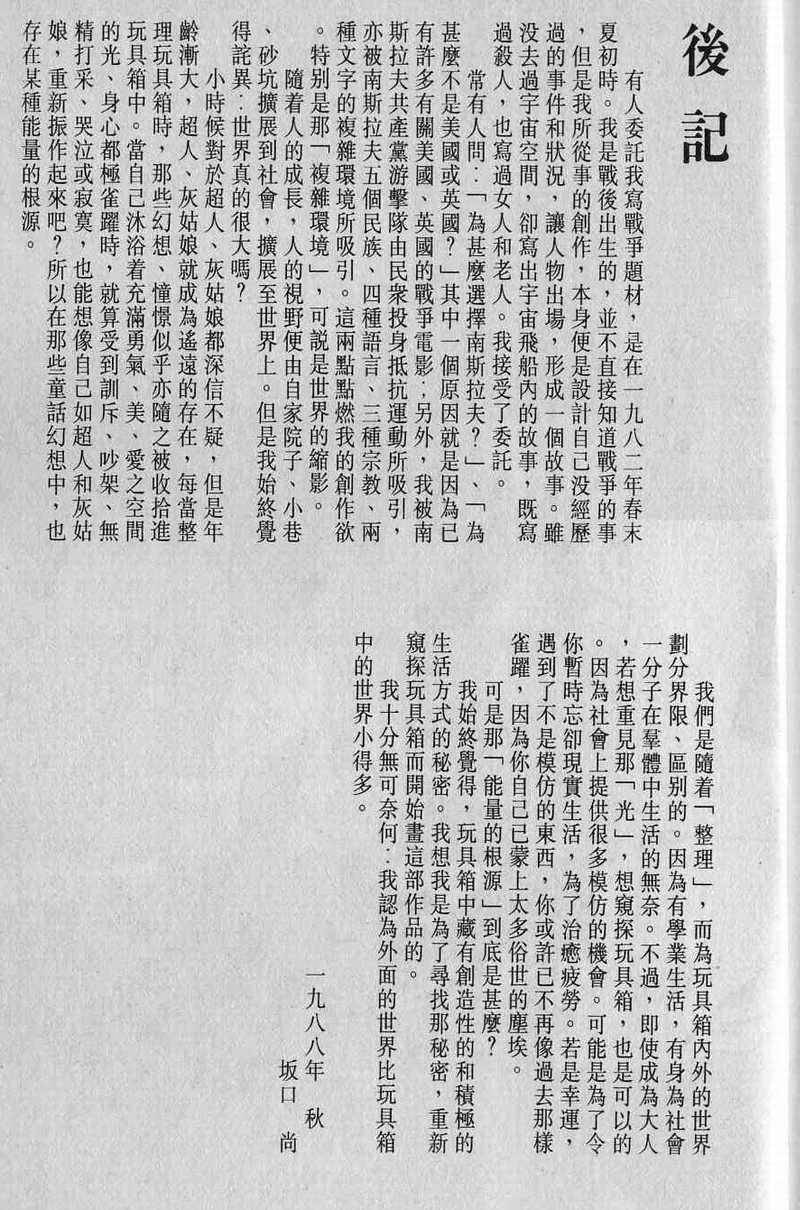 後記
有人委託我寫戰爭題材，是在一九八二年春末
夏初時。我是戰後出生的，並不直接知道戰爭的事
，但是我所從事的創作，本身便是設計自己沒經歷
過的事件和狀況，讓人物出場，形成一個故事。雖
沒去過宇宙空間，卻寫出宇宙飛船內的故事，既寫
過殺人，也寫過女人和老人。我接受了委託。
常有人問：「為甚麼選擇南斯拉夫？」、「為
甚麼不是美國或英國？」其中一個原因就是因為已
有許多有關美國、英國的戰爭電影；另外，我被南
斯拉夫共產黨游擊隊由民衆投身抵抗運動所吸引，
亦被南斯拉夫五個民族、四種語言、三種宗教、兩
種文字的複雜環境所吸引。這兩點點燃我的創作欲
。特別是那「複雜環境」，可說是世界的縮影。
隨着人的成長，人的視野便由自家院子、小巷
、砂坑擴展到社會，擴展至世界上。但是我始終覺
得詫異：世界真的很大嗎？
小時候對於超人、灰姑娘都深信不疑，但是年
齡漸大，超人、灰姑娘就成為遙遠的存在，每當整
理玩具箱時，那些幻想、憧憬似乎亦隨之被收拾進
玩具箱中。當自己沐浴着充滿勇氣、美、愛之空間
的光、身心都極雀躍時，就算受到訓斥、吵架、無
精打采、哭泣或寂寞，也能想像自己如超人和灰姑
娘，重新振作起來吧？所以在那些童話幻想中，也
存在某種能量的根源。
我們是隨着「整理」，而為玩具箱內外的世界
劃分界限、區別的。因為有學業生活，有身為社會
一分子在羣體中生活的無奈。不過，即使成為大人
，若想重見那「光」，想窺探玩具箱，也是可以的
。因為社會上提供很多模仿的機會。可能是為了令
你暫時忘卻現實生活，為了治癒疲勞。若是幸運，
遇到了不是模仿的東西，你或許已不再像過去那樣
雀躍，因為你自己已蒙上太多俗世的塵埃。
可是那「能量的根源」到底是甚麼？
我始終覺得，玩具箱中藏有創造性的和積極的
生活方式的秘密。我想我是為了尋找那秘密，重新
窺探玩具箱而開始畫這部作品的。
我十分無可奈何：我認為外面的世界比玩具箱
中的世界小得多。
一九八八年 秋
坂口 尚